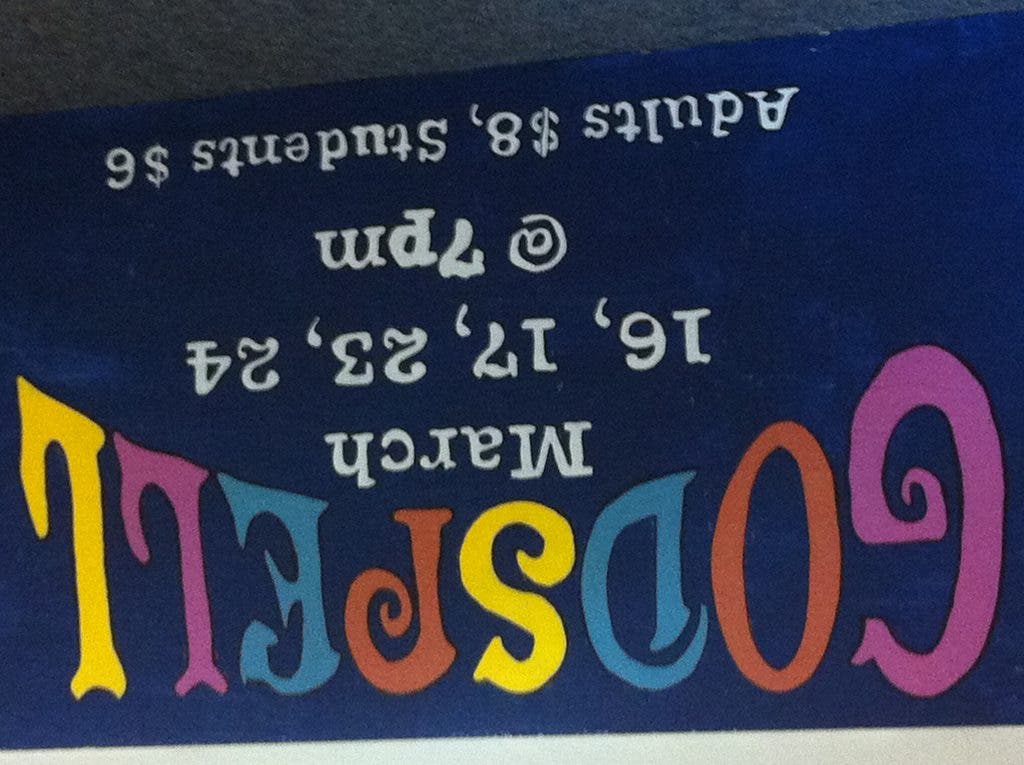 GODSPELL
March
16, 17, 23, 24
@ 7pm
Adults $8, Students $6